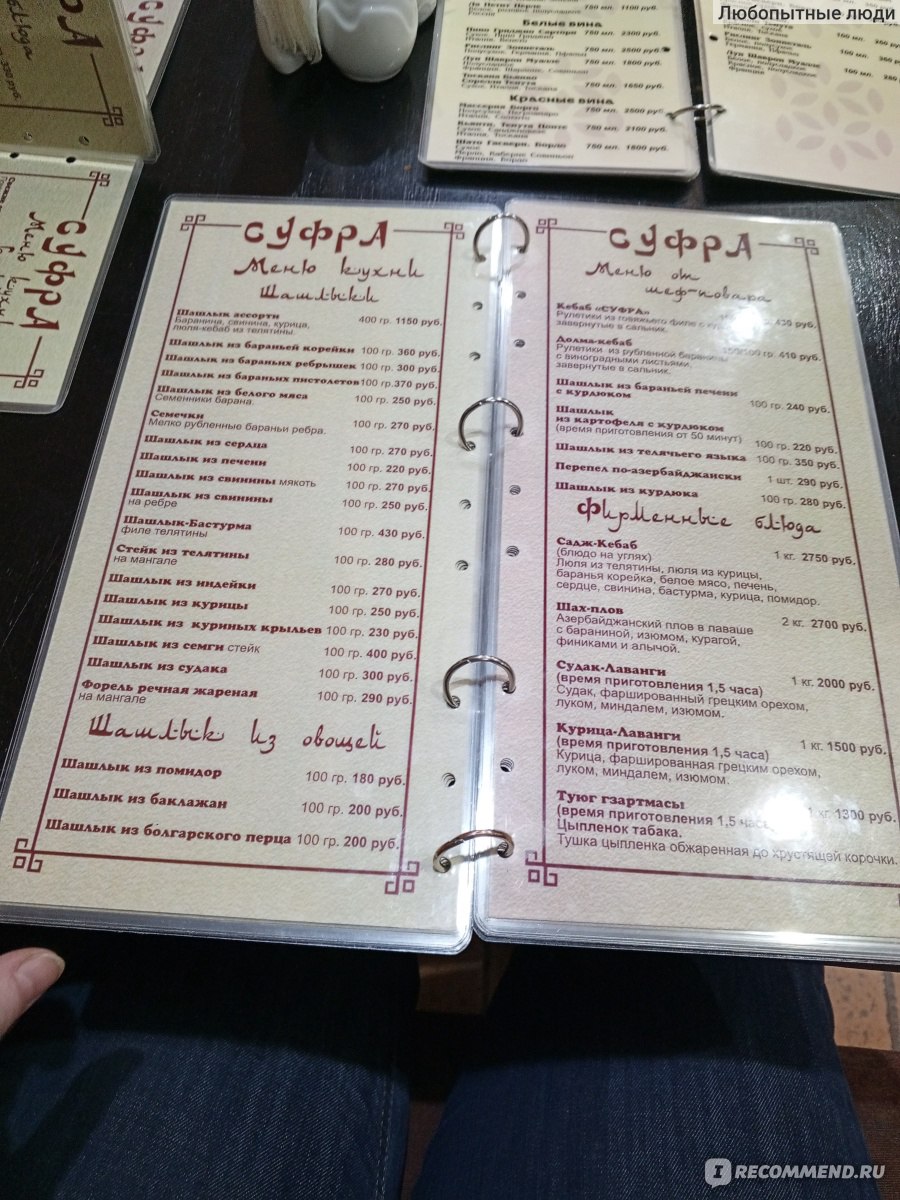 Любопытные люди
Ла Петит Перле 750 мл. 1100 руб.
Россия
Белые вина
Пино Гриджио Сартори 750 мл. 2300 руб.
Сухое, Пино Гриджио
Италия, Венето
Рислинг Зоннеталь 750 мл. 2500 руб.
Полусухое, Рислинг
Германия, Пфальц
Луи Шаврон Муэлле 750 мл. 1800 руб.
Полусладкое
Тоскана Бьянко 750 мл. 1650 руб.
Италия, Тоскана
Красные вина
750 мл. 2500 руб.
750 мл. 2100 руб.
Италия, Тоскана
750 мл. 1800 руб.
Сухое
Мерло, Каберне Совиньон
Франция, Бордо
СУФРА
Меню кухни
Шашлыки
Шашлык ассорти 400 гр. 1150 руб.
Баранина, свинина, курица,
люля-кебаб из телятины.
Шашлык из бараньей корейки 100 гр. 360 руб.
Шашлык из бараньих ребрышек 100 гр. 300 руб.
Шашлык из бараньих пистолетов 100 гр. 370 руб.
Шашлык из белого мяса 100 гр. 250 руб.
Семенники барана.
Семечки 100 гр. 270 руб.
Мелко рубленные бараньи ребра.
Шашлык из сердца 100 гр. 270 руб.
Шашлык из печени 100 гр. 220 руб.
Шашлык из свинины мякоть 100 гр. 270 руб.
Шашлык из свинины 100 гр. 250 руб.
на ребре
Шашлык-Бастурма 100 гр. 430 руб.
филе телятины
Стейк из телятины 100 гр. 280 руб.
на мангале
Шашлык из индейки 100 гр. 270 руб.
Шашлык из курицы 100 гр. 250 руб.
Шашлык из куриных крыльев 100 гр. 230 руб.
Шашлык из семги стейк 100 гр. 400 руб.
Шашлык из судака 100 гр. 300 руб.
Форель речная жареная 100 гр. 290 руб.
на мангале
Шашлык из овощей
Шашлык из помидор 100 гр. 180 руб.
Шашлык из баклажан 100 гр. 200 руб.
Шашлык из болгарского перца 100 гр. 200 руб.
СУФРА
Меню от
шеф-повара
Кебаб «СУФРА» гр. 430 руб.
Рулетики из говяжьего филе с
завернутые в сальник.
Долма-кебаб гр. 410 руб.
Рулетики из рубленной баранины
с виноградными листьями,
завернутые в сальник.
Шашлык из бараньей печени
с курдюком 100 гр. 240 руб.
Шашлык
из картофеля с курдюком
(время приготовления от 50 минут) 100 гр. 220 руб.
Шашлык из телячьего языка 100 гр. 350 руб.
Перепел по-азербайджански 1 шт. 290 руб.
Шашлык из курдюка 100 гр. 280 руб.
Фирменные блюда
Садж-Кебаб 1 кг. 2750 руб.
(блюдо на углях)
Люля из телятины, люля из курицы,
баранья корейка, белое мясо, печень,
сердце, свинина, бастурма, курица, помидор.
Шах-плов 2 кг. 2700 руб.
Азербайджанский плов в лаваше
с бараниной, изюмом, курагой,
финиками и алычой.
Судак-Лаванги 1 кг. 2000 руб.
(время приготовления 1,5 часа)
Судак, фаршированный грецким орехом,
луком, миндалем, изюмом.
Курица-Лаванги 1 кг. 1500 руб.
(время приготовления 1,5 часа)
Курица, фаршированная грецким орехом,
луком, миндалем, изюмом.
Туюг гзартмасы
(время приготовления 1,5 часа) 1 кг. 1300 руб.
Цыпленок табака.
Тушка цыпленка обжаренная до хрустящей корочки.
СУФРА
Меню кухни
IRECOMMEND.RU